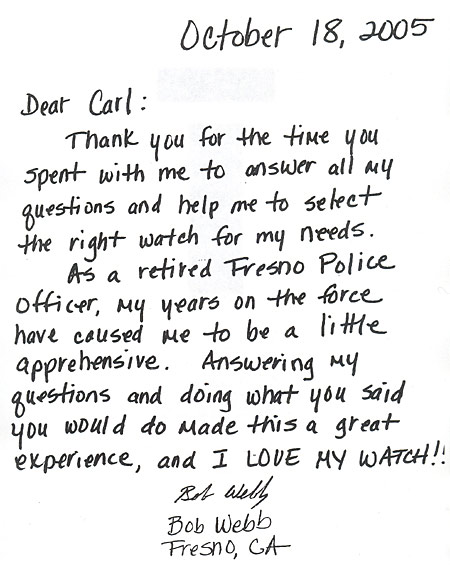 October 18, 2005
Dear Carl:
Thank you for the time you
spent with me to answer all my
questions and help me to select
the right watch for my needs.
As a retired Fresno Police
Officer, my years on the force
have caused me to be a little
apprehensive. Answering my
questions and doing what you said
you would do made this a great
experience, and I LOVE MY WATCH!!
Bob Webb
Bob Webb
Fresno, CA